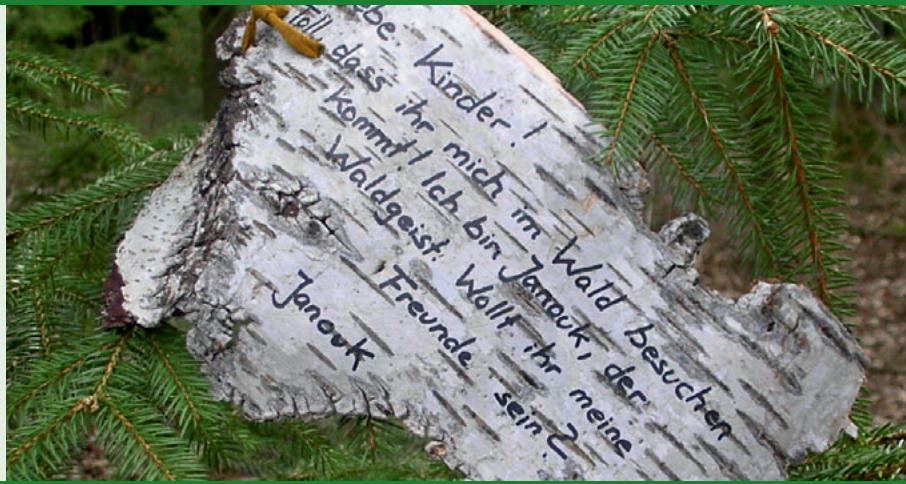 ebe Kinder!
Toll, dass ihr mich im Wald besuchen
kommt! Ich bin Janouk, der
Waldgeist. Wollt ihr meine
Freunde sein?
Janouk